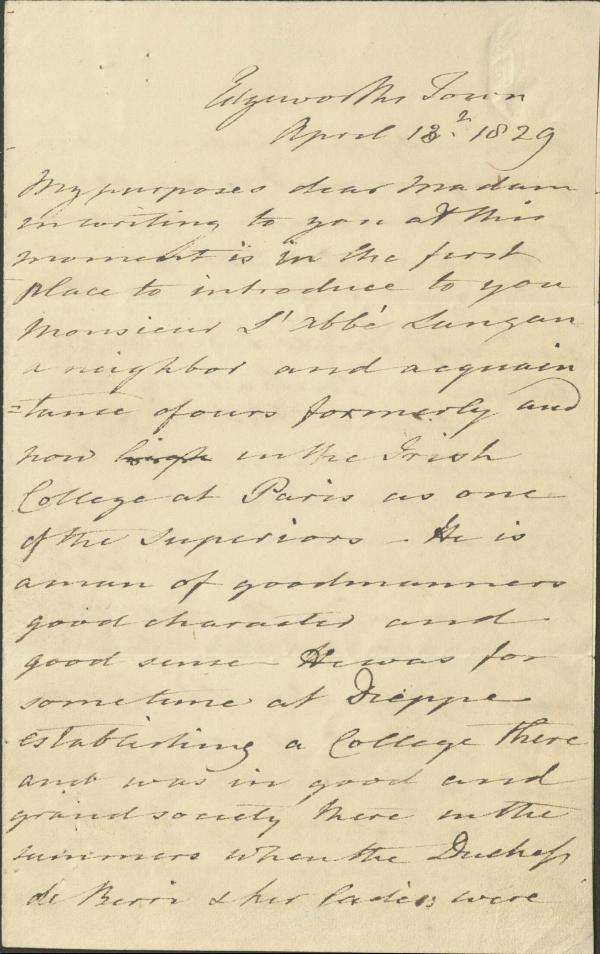 Edgeworths Town
April 13.d 1829
My purposes dear Madam
in writing to you at this
moment is in the first
place to introduce to you
Monsieur L'Abbé Langan
a neighbor and acquain
=tance of ours formerly and
now in the Irish
College at Paris as one
of the Superiors - He is
a man of good manners
good character and
good sense He was for
sometime at Dieppe
establishing a College there
and was in good and
grand society there in the
summers when the Duchess
de Berri & her ladies were